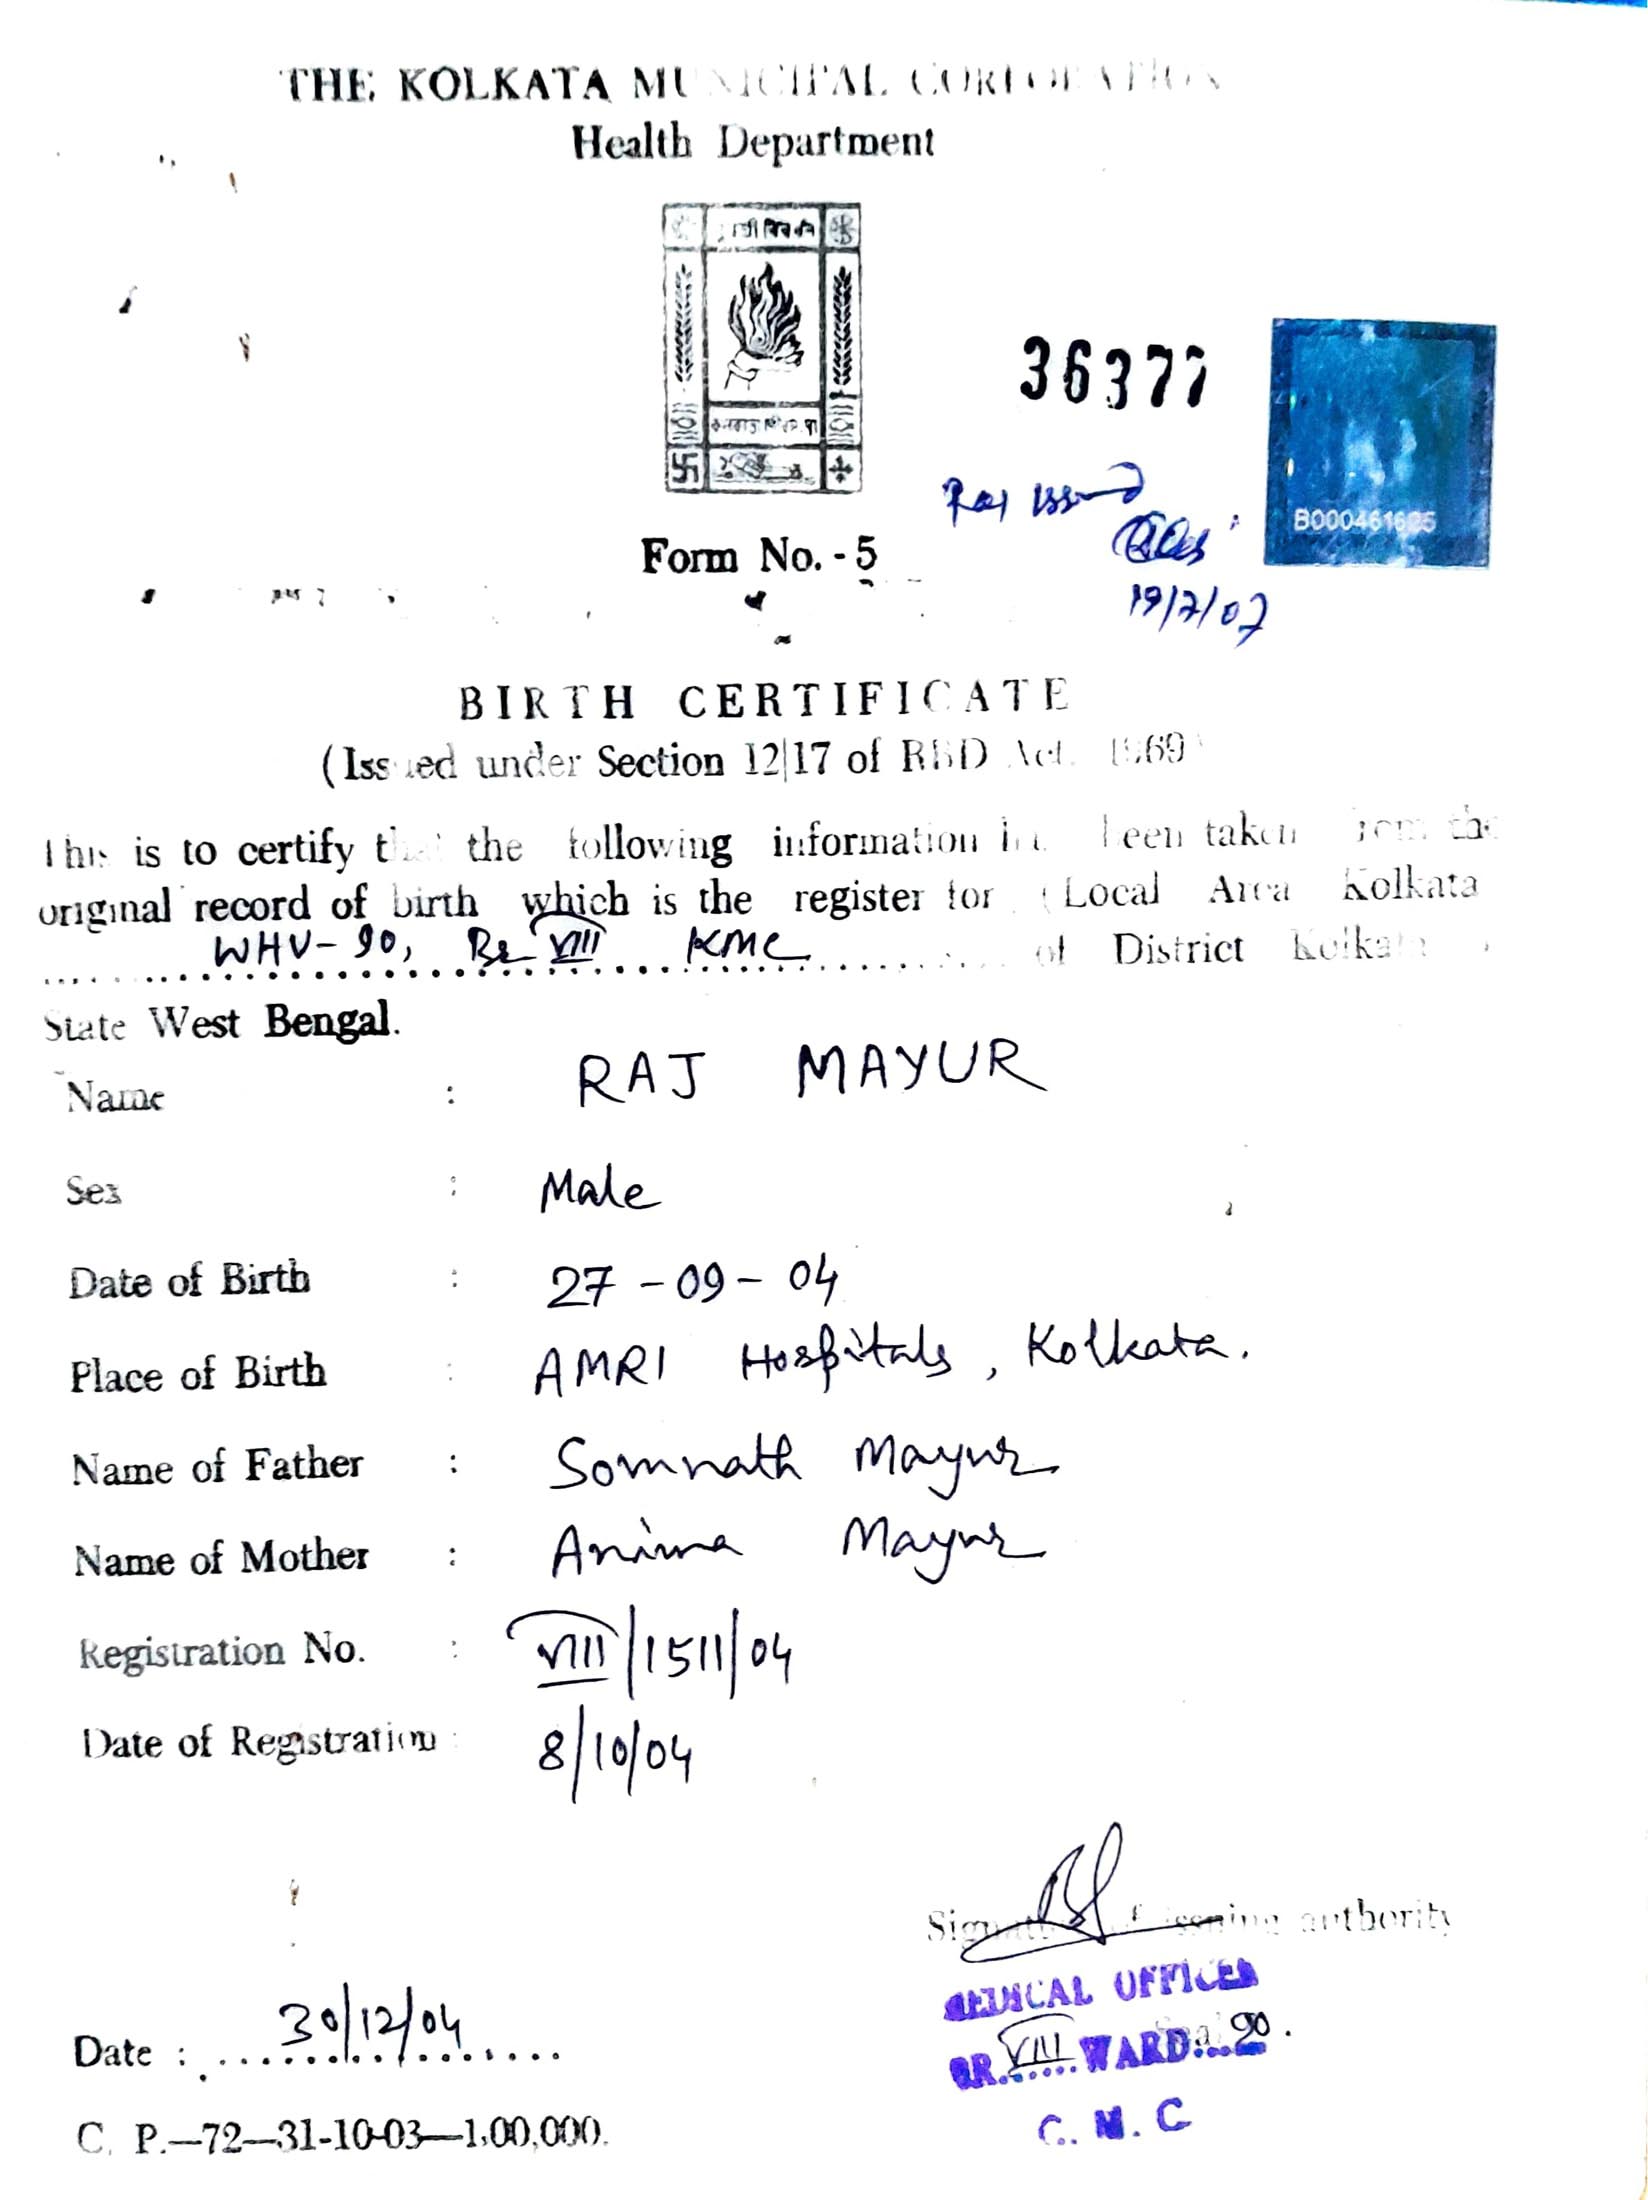 THE KOLKATA MUNICIPAL CORPORATION
Health Department
36377
B000461625
Form No. - 5
19/7/07
BIRTH CERTIFICATE
(Issued under Section 12|17 of RBD Act. 1969)
This is to certify that the following information has been taken from the
original record of birth which is the register for (Local Area Kolkata
WHV-90, Br VIII KMC of District Kolkata
State West Bengal.
Name : RAJ MAYUR
Sex : Male
Date of Birth : 27-09-04
Place of Birth : AMRI Hospitals, Kolkata.
Name of Father : Somnath Mayur
Name of Mother : Anima Mayur
Registration No. : VIII/1511/04
Date of Registration : 8/10/04
Signature of issuing authority
MEDICAL OFFICER
BR. VIII WARD. 90.
C. M. C
Date : 30/12/04
C. P.—72—31-10-03—1,00,000.